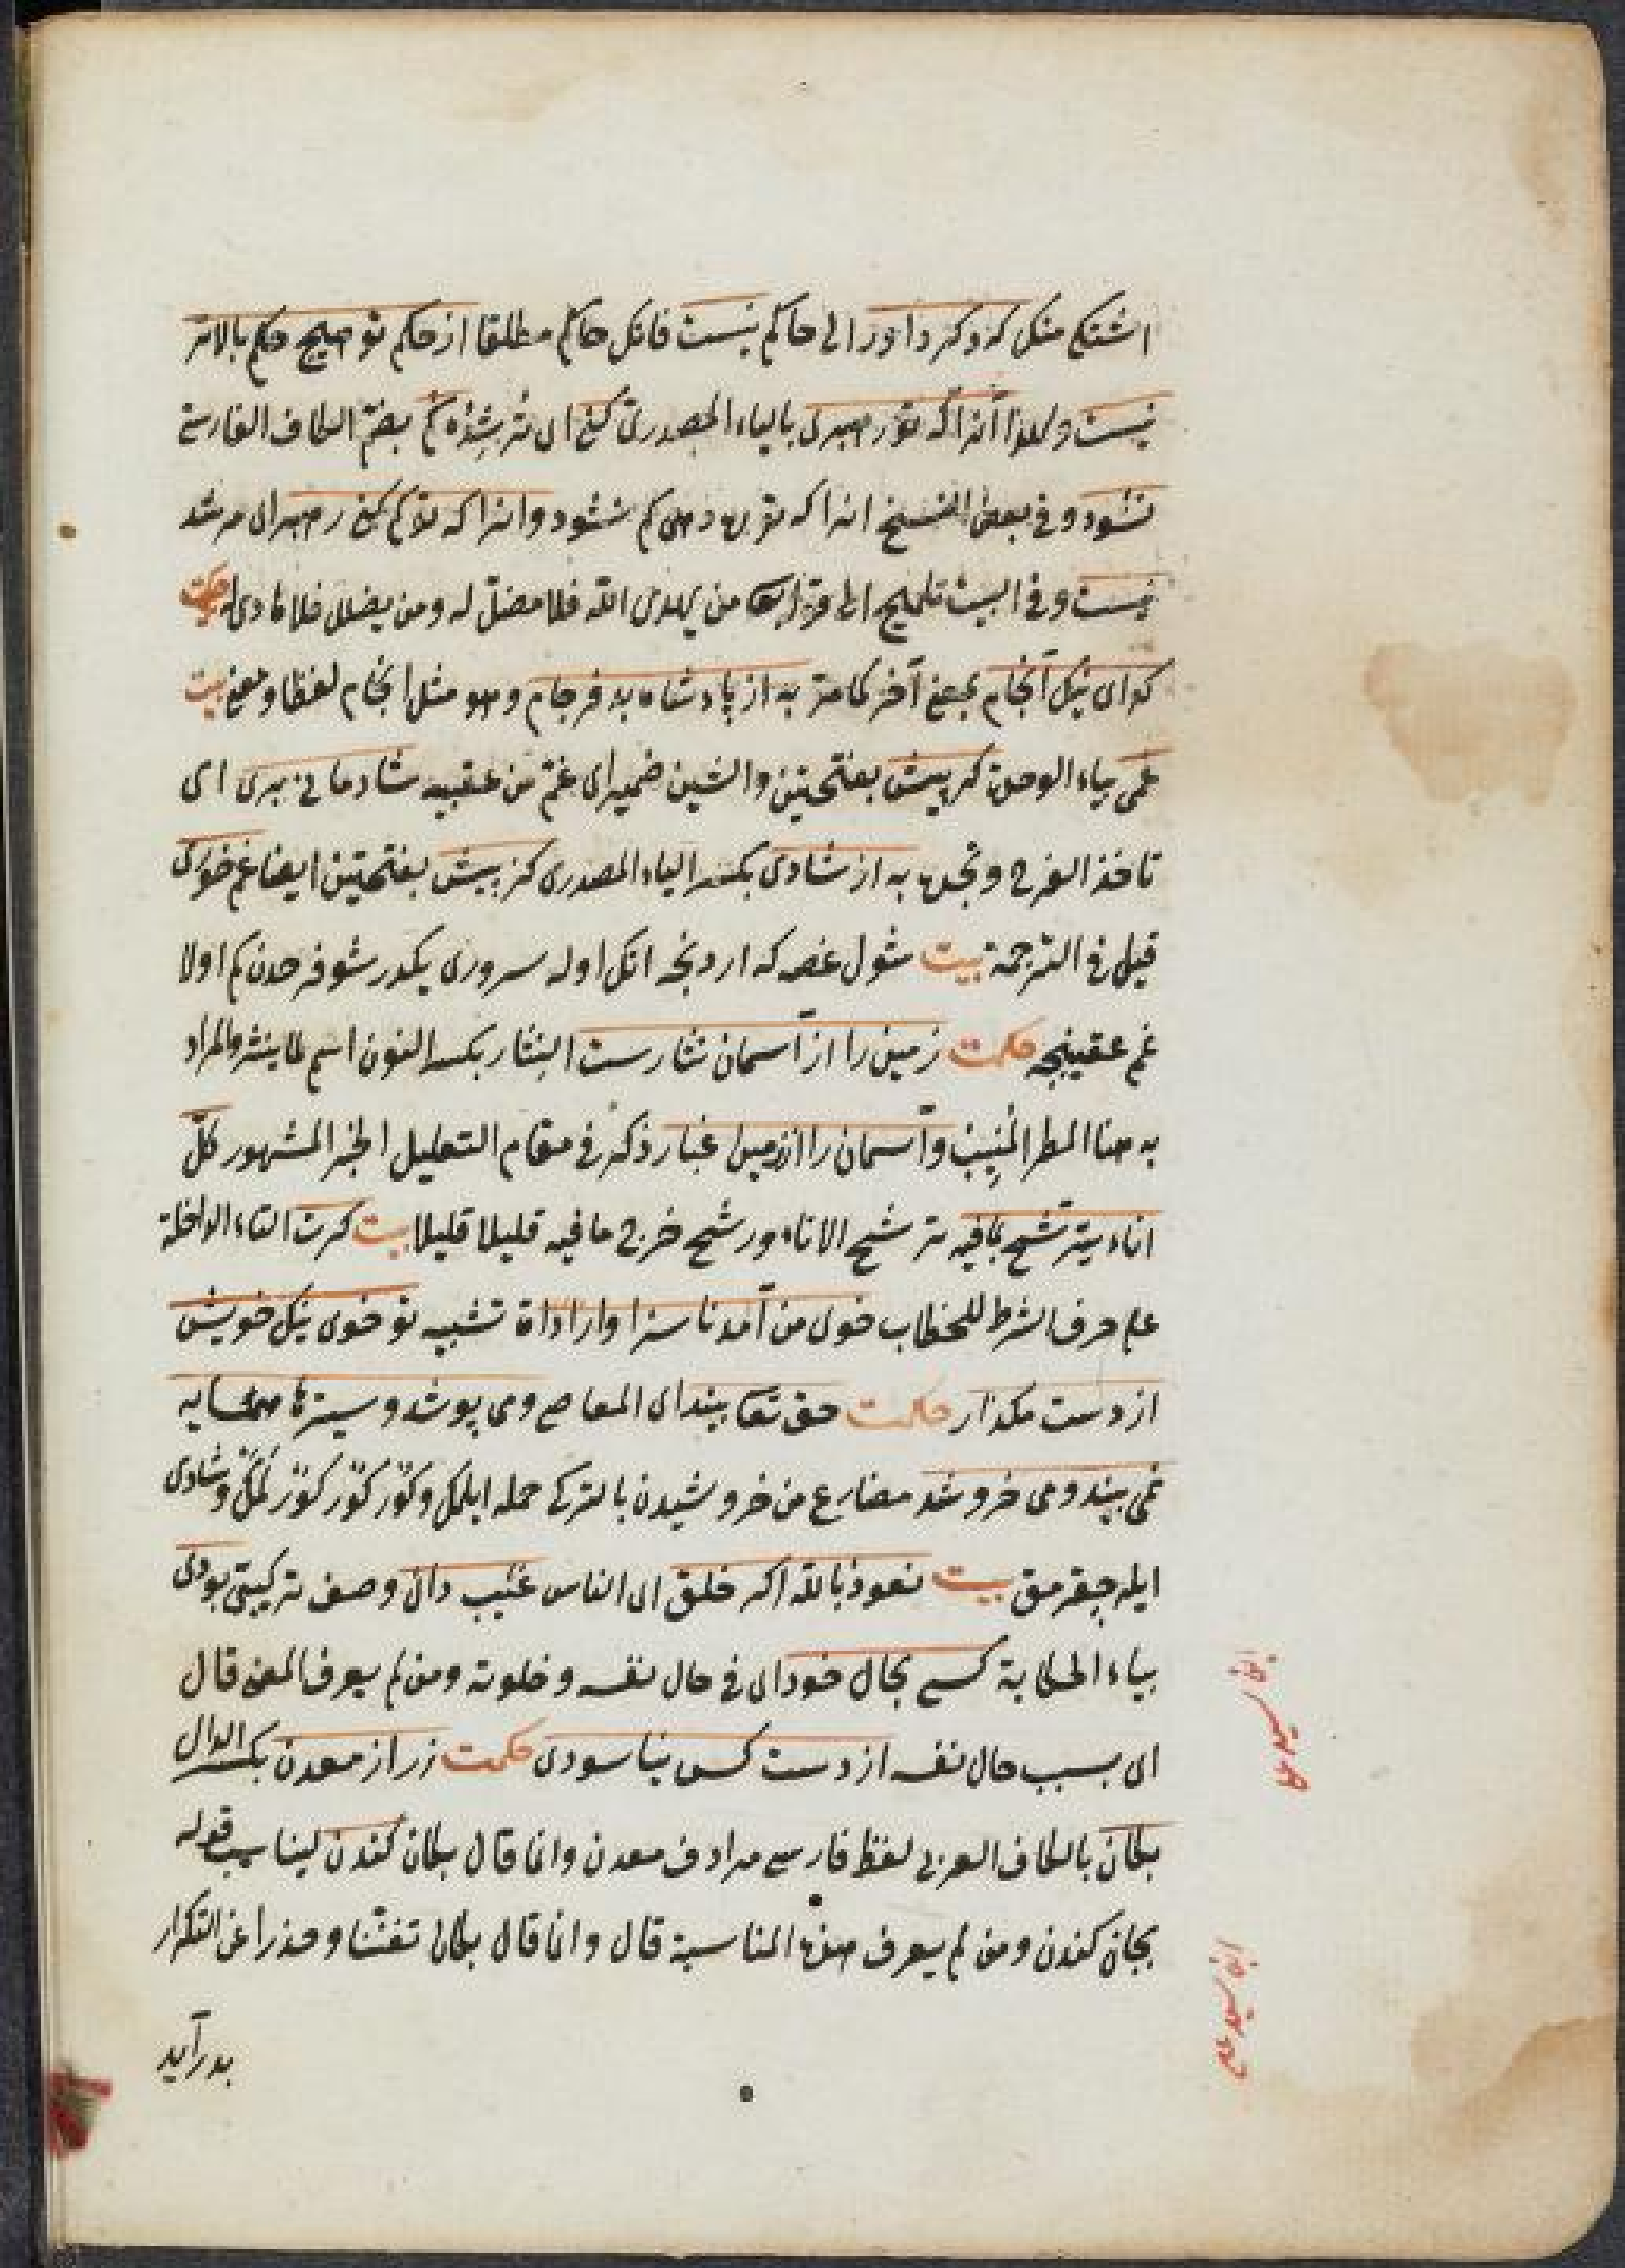 اشتكی منك كه دكر داور ای حاكم نیست فانك حاكم مطلقا از حكم تو هیچ حكم بالاتر
نیست ولهذا آنراكه تو رهبری بالیاء المصدری كنی ای مرشده كم بضم الكاف الفارسی
نشود و فی بعض النسخ انرا كه تو ره دهی كم نشود وانرا كه تو كم كنی رهبر ای مرشد
نیست و فی البیت تلمیح الی قوله تعا من یهدی الله فلا مضل له ومن یضلل فلا هادی له حكمت
كدای نیك آنجام بمعنی آخر كامنر به از پادشاه بد فرجام وهو مثل انجام لفظا ومعنی بیت
غمی بیاء الوحدة كز پیش بفتحتین والشین ضمیر ای غم من عقبیه شادمانی بری ای
تاخذ الفرح وتجد به از شادی بكسر الیاء المصدری كز پیش بفتحتین ایضا غم خوری
قیل فی الترجمة بیت شول غصه كه اردنجه انك اوله سروری یكدر شو فرحدن كم اولا
غم عقبنجه حكمت زمین را از آسمان نثارست النثار بكسر النون اسم لما ینثر والمراد
به هنا المطر المنبت وآسمان را از زمین غبار ذكر فی مقام التعلیل الخبر المشهور كل
اناء یترشح بما فیه ترشح الاناء ورشح خرج ما فیه قلیلا قلیلا بیت كرت التاء الداخلة
علی حرف الشرط للخطاب خوی من آمد ناسزاوار اداة تشبیه تو خوی نیك خویش
از دست مكذار حكمت حق تعا بیند ای المعاصی ومی پوشد وسیترها همسایه
نمی بیند ومی خروشد مضارع من خروشیدن بالتركی حمله ایلمك وكوز كوز كوز كلمك وشادی
ایله چقرمق بیت نعوذ بالله اكر خلق ای الناس غیب دان وصف تركیبی بودی
بیاء الحكایة كسی بحال خود ای فی حال نفسه وخلوته ومن لم یعرف المعنی قال
ای بسبب حال نفسه از دست كس نیاسودی حكمت زر از معدن بكسر الدال
بكان بالكاف العربی لفظ فارسی مرادف معدن وانما قال بكان كندن لیناسب قوله
بجان كندن ومن لم یعرف هذه المناسبة قال وانما قال بكان تفننا وحذرا عن التكرار
بدر آید